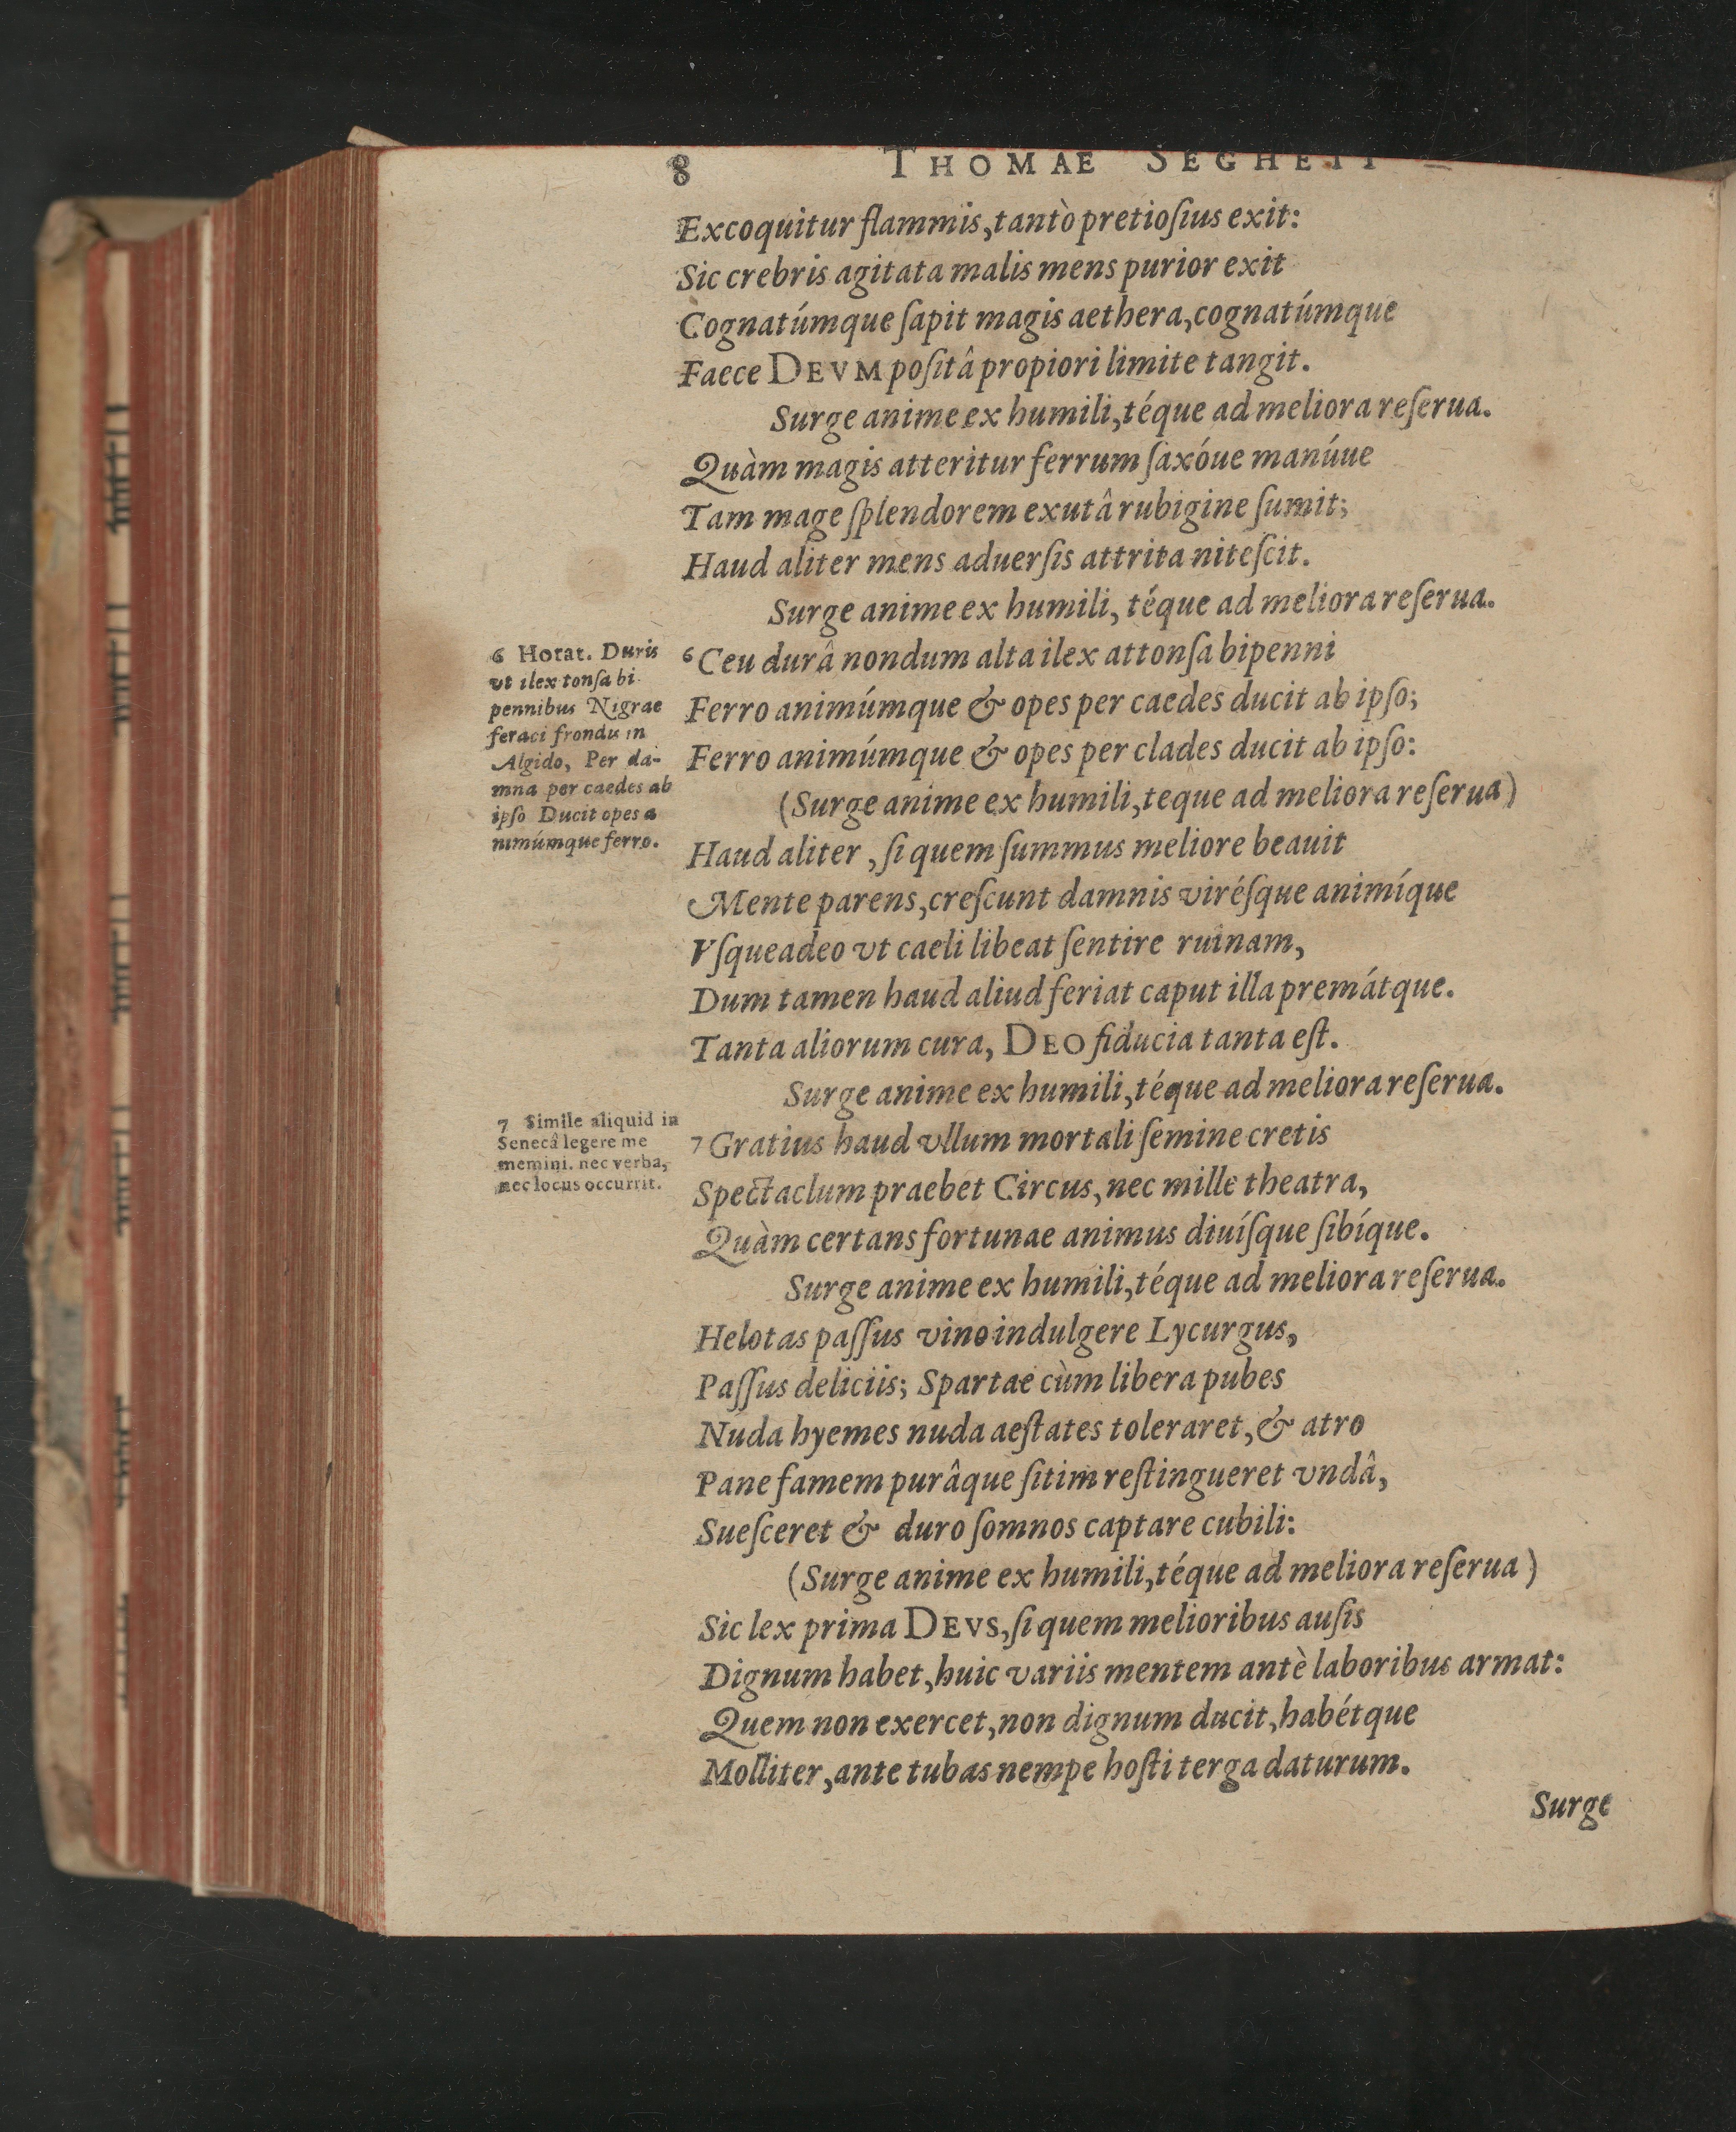 8 THOMAE SEGHETI
Excoquitur flammis, tantò pretioſius exit:
Sic crebris agitata malis mens purior exit
Cognatúmque ſapit magis aethera, cognatúmque
Faece DEVM poſitâ propiori limite tangit.
Surge anime ex humili, téque ad meliora reſerua.
Quàm magis atteritur ferrum ſaxóue manúue
Tam mage ſplendorem exutâ rubigine ſumit;
Haud aliter mens aduerſis attrita niteſcit.
Surge anime ex humili, téque ad meliora reſerua.
6 Ceu durâ nondum alta ilex attonſa bipenni
Ferro animúmque & opes per caedes ducit ab ipſo;
Ferro animúmque & opes per clades ducit ab ipſo:
(Surge anime ex humili, teque ad meliora reſerua)
Haud aliter, ſi quem ſummus meliore beauit
Mente parens, creſcunt damnis viréſque animíque
Vſqueadeo vt caeli libeat ſentire ruinam,
Dum tamen haud aliud feriat caput illa premátque.
Tanta aliorum cura, DEO fiducia tanta eſt.
Surge anime ex humili, téque ad meliora reſerua.
7 Gratius haud vllum mortali ſemine cretis
Spectaclum praebet Circus, nec mille theatra,
Quàm certans fortunae animus diuíſque ſibíque.
Surge anime ex humili, téque ad meliora reſerua.
Helotas paſſus vino indulgere Lycurgus,
Paſſus deliciis; Spartae cùm libera pubes
Nuda hyemes nuda aeſtates toleraret, & atro
Pane famem purâque ſitim reſtingueret vndâ,
Sueſceret & duro ſomnos captare cubili:
(Surge anime ex humili, téque ad meliora reſerua)
Sic lex prima DEVS, ſi quem melioribus auſis
Dignum habet, huic variis mentem antè laboribus armat:
Quem non exercet, non dignum ducit, habétque
Molliter, ante tubas nempe hoſti terga daturum.
Surge
6 Horat. Duris
vt ilex tonſa bi
pennibus Nigrae
feraci frondis in
Algido, Per da-
mna per caedes ab
ipſo Ducit opes a
nimúmque ferro.
7 Simile aliquid in
Senecâ legere me
memini. nec verba,
nec locus occurrit.